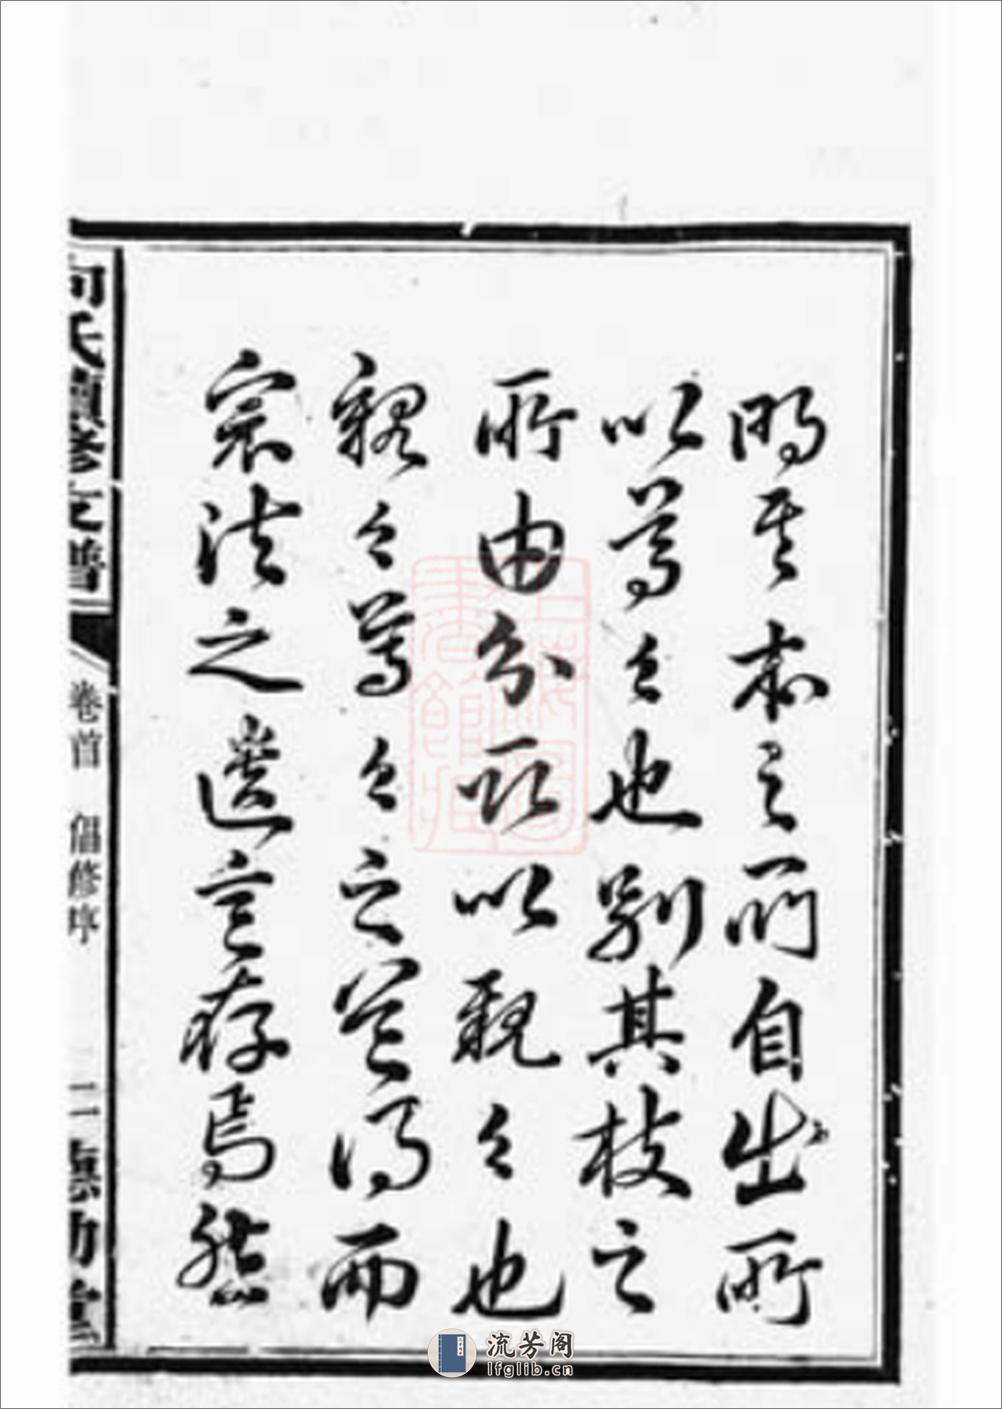 明其本之所自出所
以尊々也別其枝之
所由分所以親々也
親々尊々之道得而
宗法之遺意存焉然
氏續修支譜
卷首 倡修序
二
流芳阁
lfglib.cn